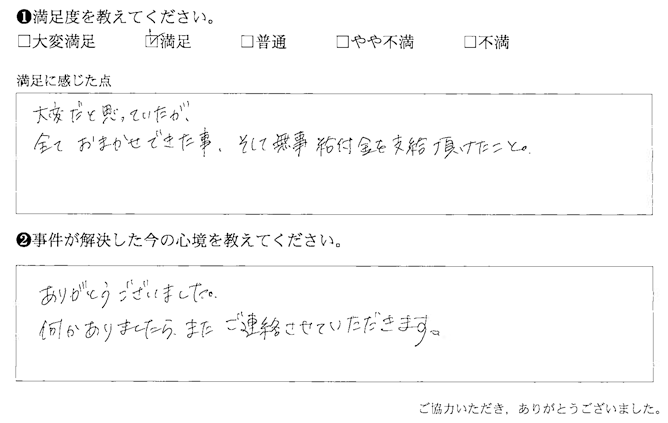 ❶満足度を教えてください。
□大変満足 ☑満足 □普通 □やや不満 □不満
満足に感じた点
大変だと思っていたが、
全て おまかせできた事、そして無事 給付金を支給 頂けたこと。
❷事件が解決した今の心境を教えてください。
ありがとうございました。
何かありましたら、また ご連絡させていただきます。
ご協力いただき、ありがとうございました。